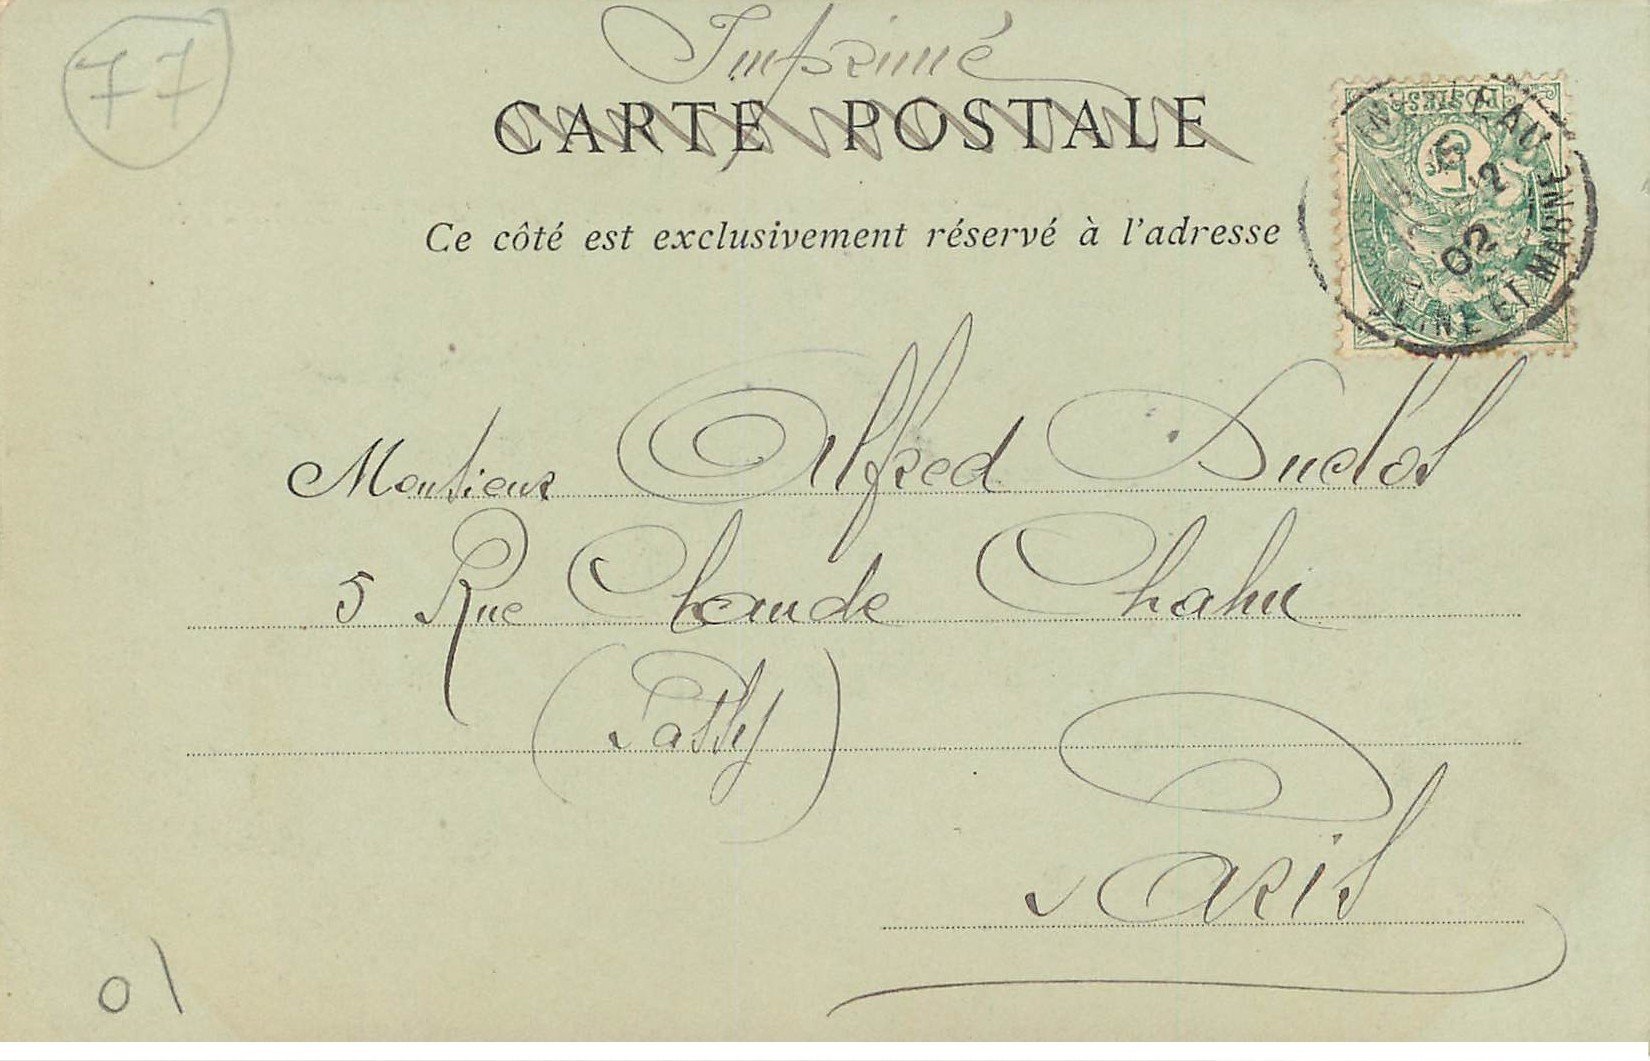 77
Imprimé
CARTE POSTALE
Ce côté est exclusivement réservé à l'adresse
POSTES
5
EAU
2
02
SEINE ET MARNE
Monsieur Alfred Duclos
5 Rue Claude Chahu
(Passy)
Paris
01